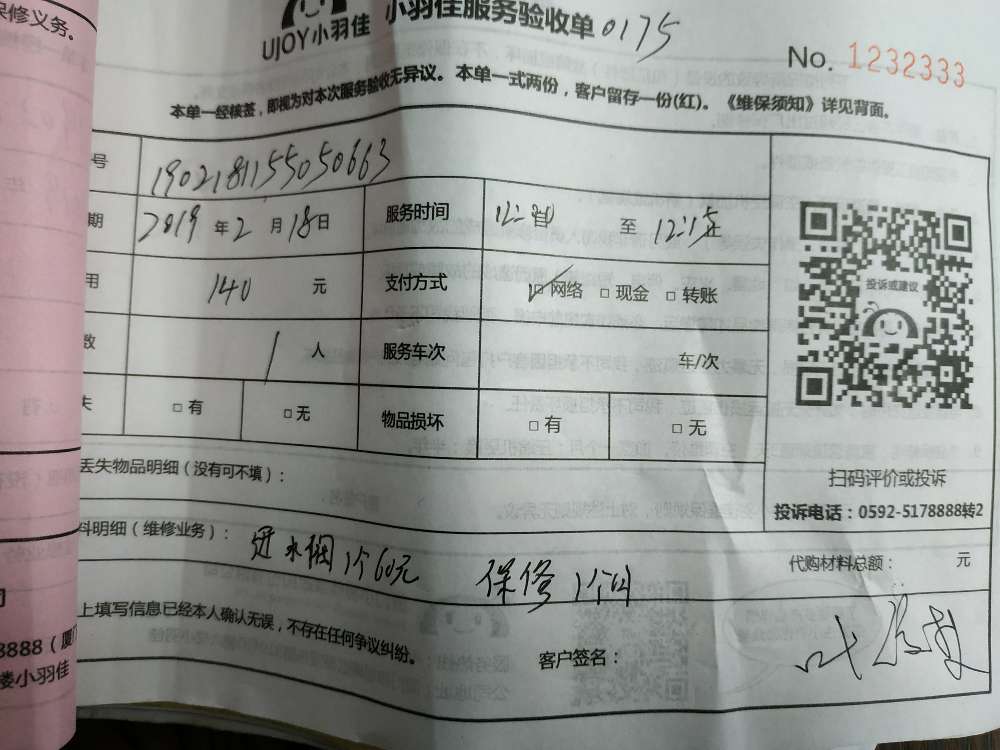 保修义务。
UJOY小羽佳
小羽佳服务验收单 0175
No. 1232333
本单一经核签，即视为对本次服务验收无异议。本单一式两份，客户留存一份(红)。《维保须知》详见背面。
号 1902181155050663
期 2019 年 2 月 18 日 服务时间 至 12:15
用 140 元 支付方式 ☑网络 □现金 □转账
数 1 人 服务车次 车/次
失 □有 □无 物品损坏 □有 □无
投诉或建议
扫码评价或投诉
投诉电话：0592-5178888转2
丢失物品明细（没有可不填）：
料明细（维修业务）： 进水阀1个60元 保修1个月
代购材料总额： 元
上填写信息已经本人确认无误，不存在任何争议纠纷。
客户签名： 叶
司
8888（厦门
楼小羽佳